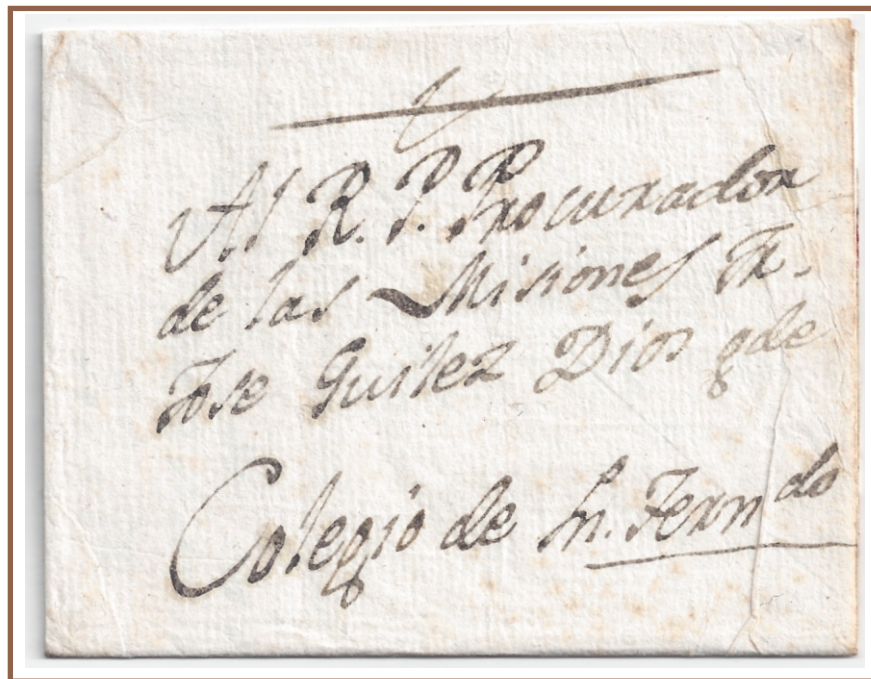 Al R. P. Procurador
de las Misiones Fr.
Jose Guilez Dios gde
Colegio de Sn. Fernando